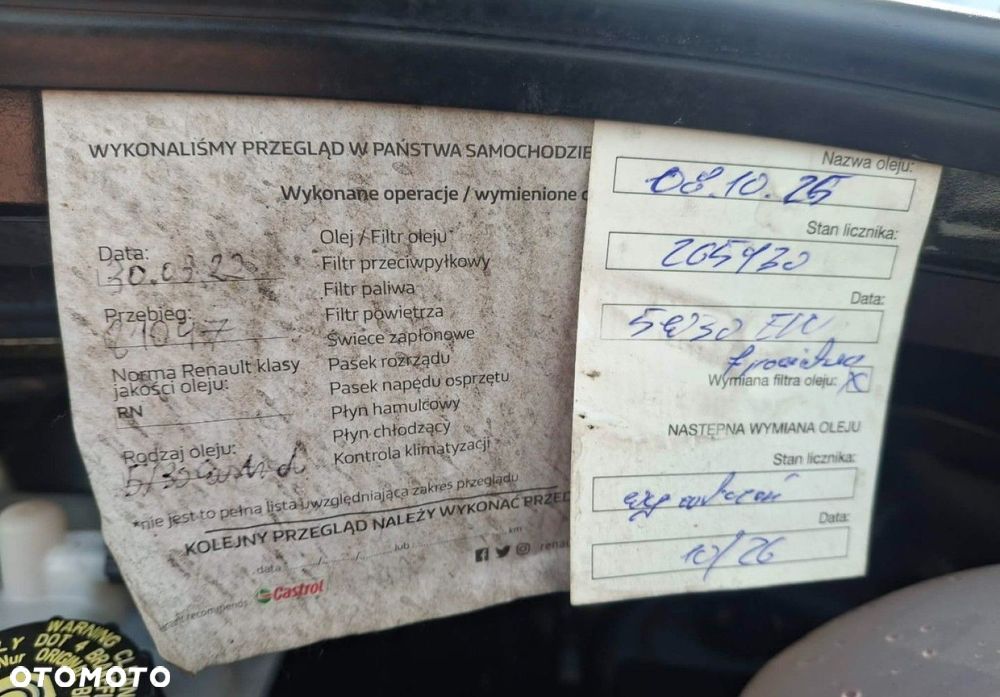 WYKONALIŚMY PRZEGLĄD W PAŃSTWA SAMOCHODZIE
Wykonane operacje / wymienione
Data:
30.03.23
Przebieg:
61047
Norma Renault klasy
jakości oleju:
RN
Rodzaj oleju:
5/30 Castrol
Olej / Filtr oleju*
Filtr przeciwpyłkowy
Filtr paliwa
Filtr powietrza
Świece zapłonowe
Pasek rozrządu
Pasek napędu osprzętu
Płyn hamulcowy
Płyn chłodzący
Kontrola klimatyzacji
*nie jest to pełna lista uwzględniająca zakres przeglądu
KOLEJNY PRZEGLĄD NALEŻY WYKONAĆ PRZED
data ....../....../...... lub ............ km
Castrol
Nazwa oleju:
08.10.25
Stan licznika:
205430
Data:
5W30
Wymiana filtra oleju: X
NASTĘPNA WYMIANA OLEJU
Stan licznika:
Data:
10/26
WARNING
DOT 4
Nur ORIGINAL
OTOMOTO